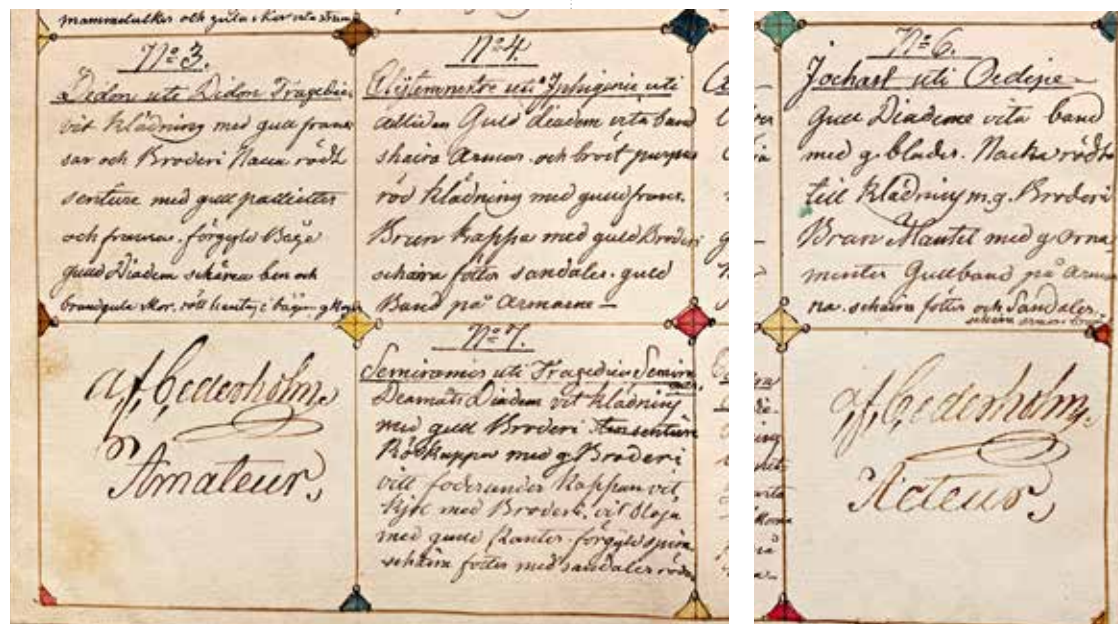 mammelukker och gula skor vita strum
N:o 3.
Didon uti Didon Tragedie
vit klädning med guld fran
sar och Broderi Naca rödt
senture med guld pailletter
och fransar. förgyld Bäge
guld Diadem schära ben och
brandgula skor. rött
N:o 4.
Clijtemnestre uti Iphigenie uti
Aulliden Guld diadem vita band
skaira Armar. och bröst purpur
röd klädning med guld frans.
Brun kappa med guld Broderi
schaira fötter sandaler. guld
Band på Armarne —
N:o 7.
Semiramis uti Tragedien Semira
mis.
Deamants Diadem vit klädning
med guld Broderi senture
Röd kappa med g Broderi
vitt foder under kappan vit
kjol med Broderi. vit Slöja
med guld kanter förgyld spira
schaira fötter med sandaler röda
af Cederholm
Amateur
N:o 6.
Jochast uti Oedipe —
Guld Diadem vita band
med g. blader. Nacka rödt
till klädning m. g. Broderi
Brun Mantel med g orna
menter Guldband på Arma
na. schaira fötter och Sandaler.
schaira armar. bröst
af Cederholm
Acteur